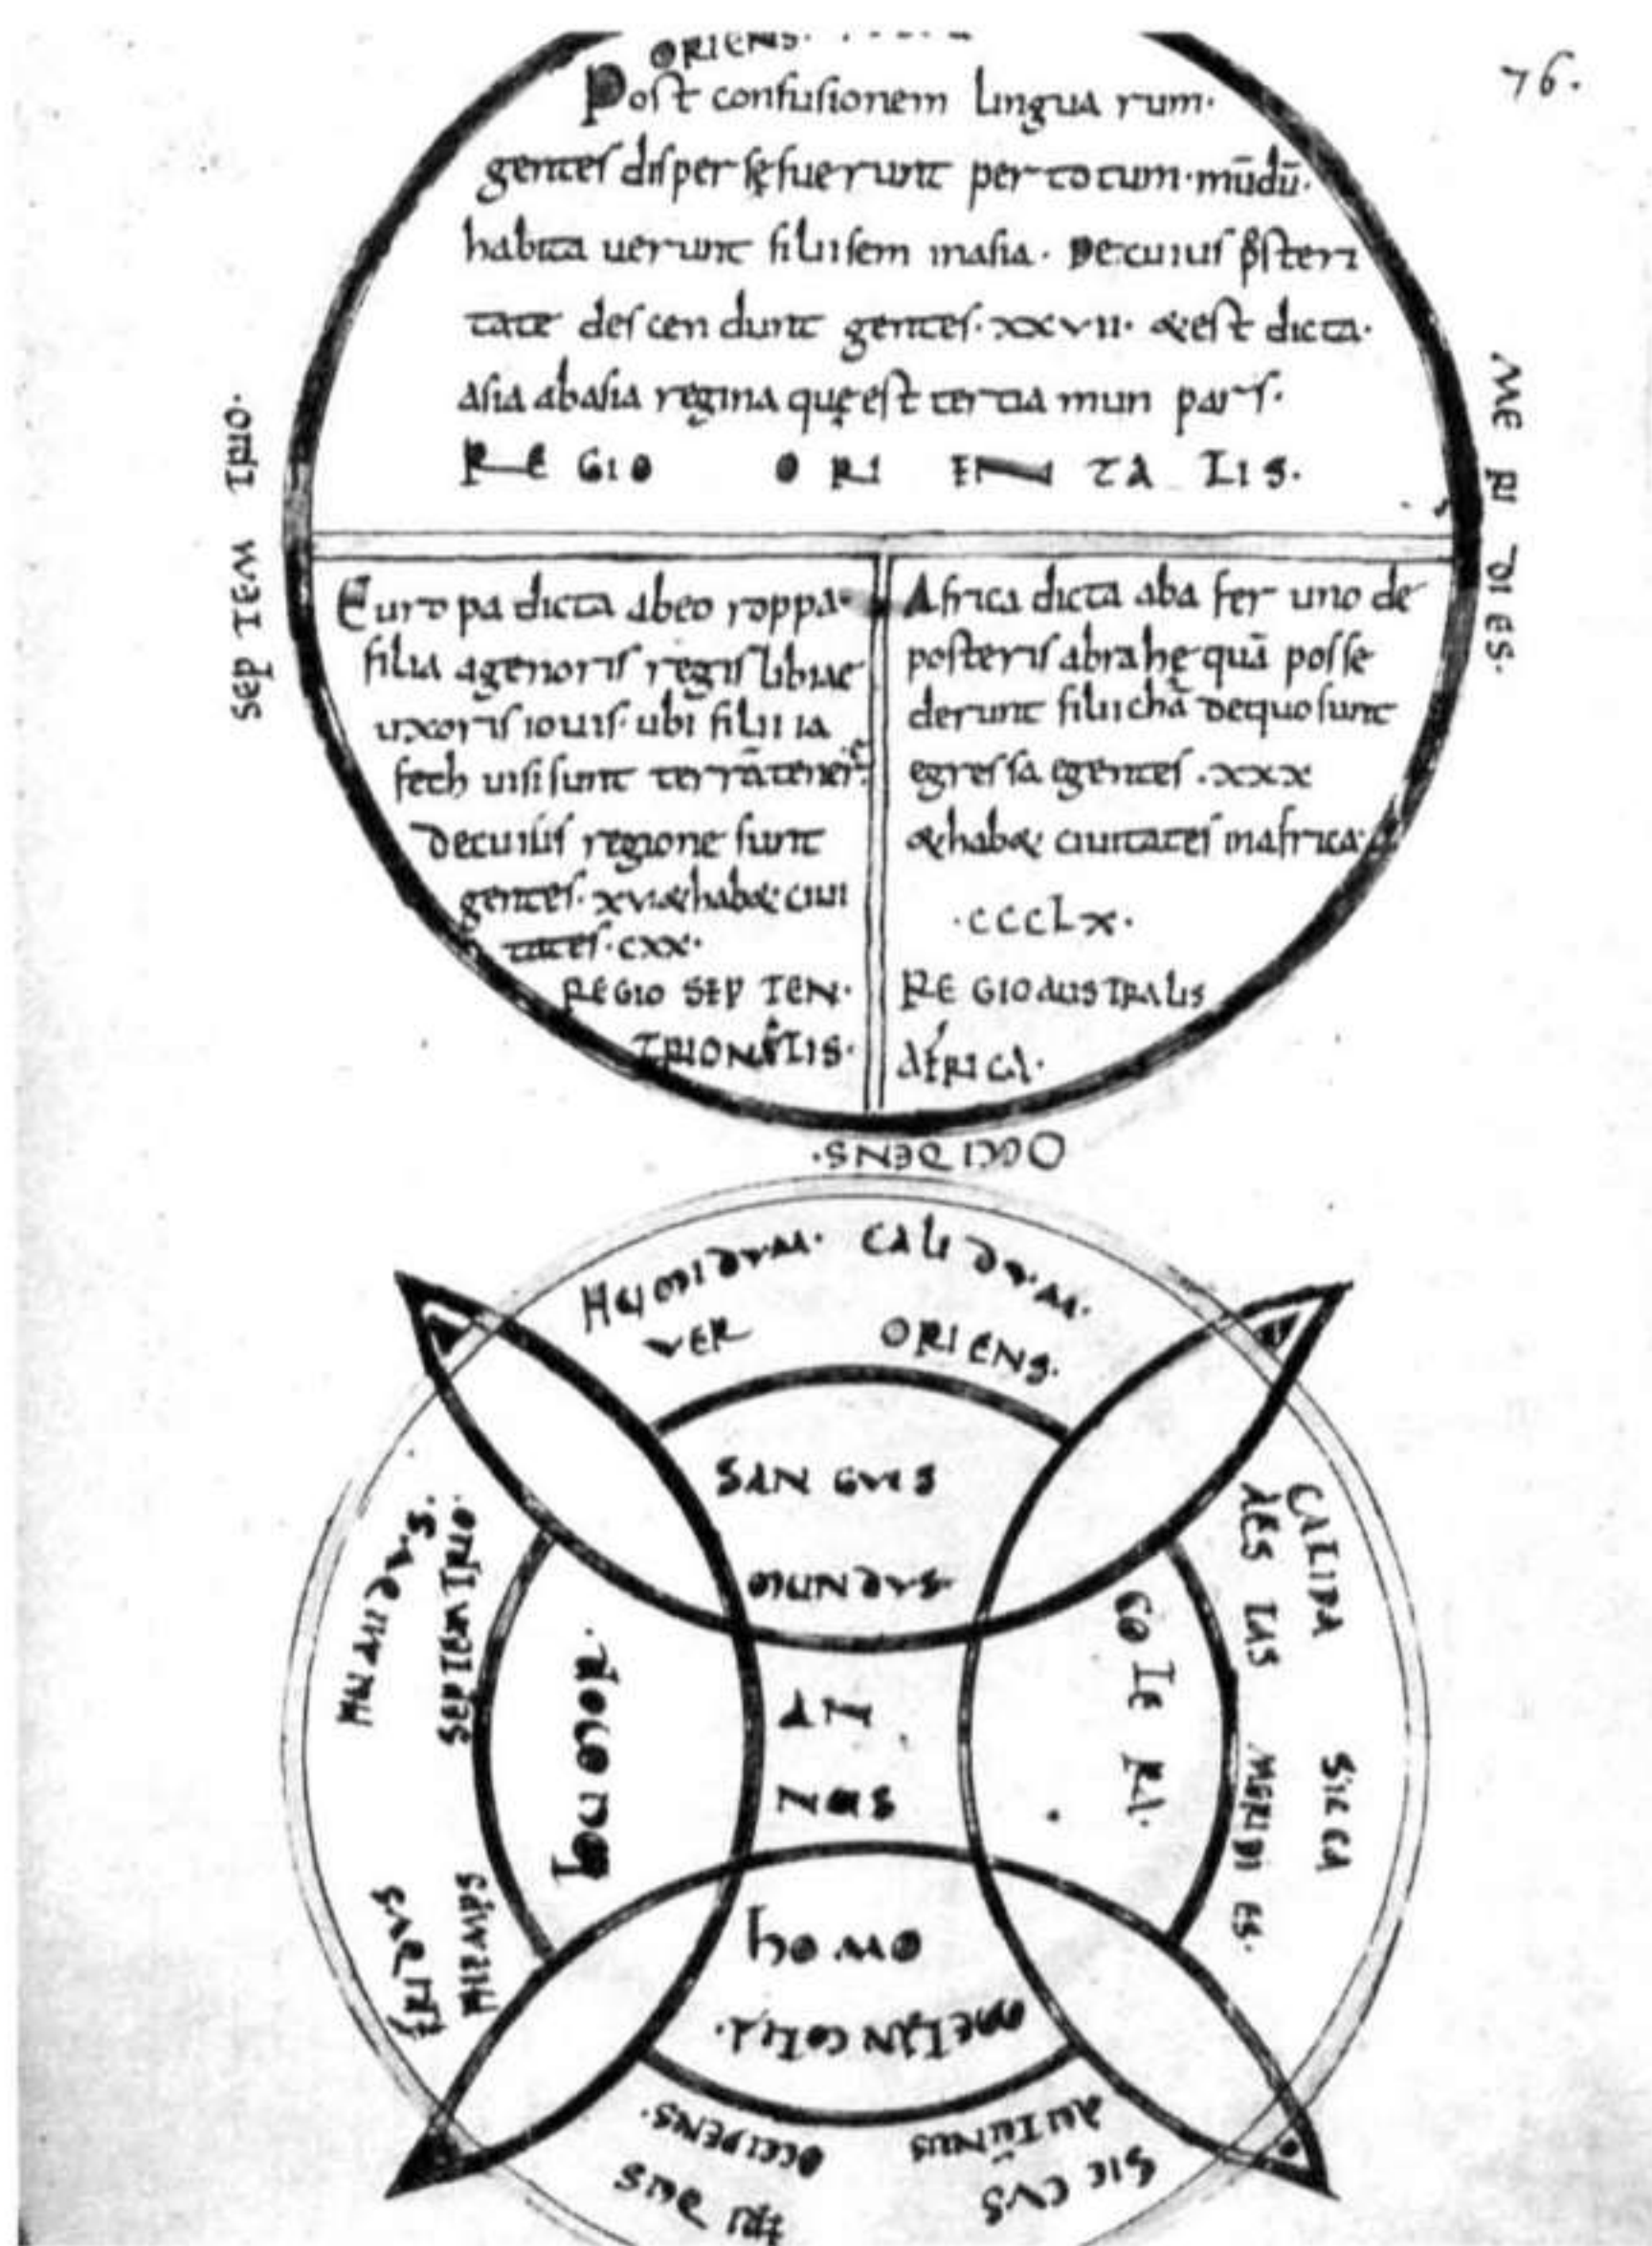 76.
ORIENS.
Post confusionem lingua rum.
gentes disper sę fuerunt per totum. mūdū.
habita uerunt filii sem in asia. De cuius p̄steri
tate des cen dunt gentes. xxvii. & est dicta.
asia ab asia regina quę est tertia mun pars.
RE GIO ORI EN TA LIS.
SEP TEM TRIO.
ME RI DI ES.
Euro pa dicta ab eo roppa.
filia agenoris regis libiae
uxoris iouis. ubi filii ia
feth uisi sunt terrā tenere.
De cuius regione sunt
gentes. xv. & hab& ciui
tates. cxx.
REGIO SEP TEN.
TRIONALIS.
Africa dicta ab a fer uno de
posteris abrahę quā posse
derunt filii chā De quo sunt
egres sa e gentes. xxx
& hab& ciuitates in africa.
.CCCLX.
RE GIO AUSTRALIS
AFRICA.
OCCIDENS.
HUMIDUM. CALIDUM.
VER ORIENS.
SAN GUIS
MUNDUS
AN
NUS
HOMO
MELAN COLIA.
OCCIDENS. AUTŪNUS
FRI DUS SIC CUS
COLE RA.
AES TAS MERIDI ES.
CALIDA SICCA
SEPTEMTRIO.
HIEMPS